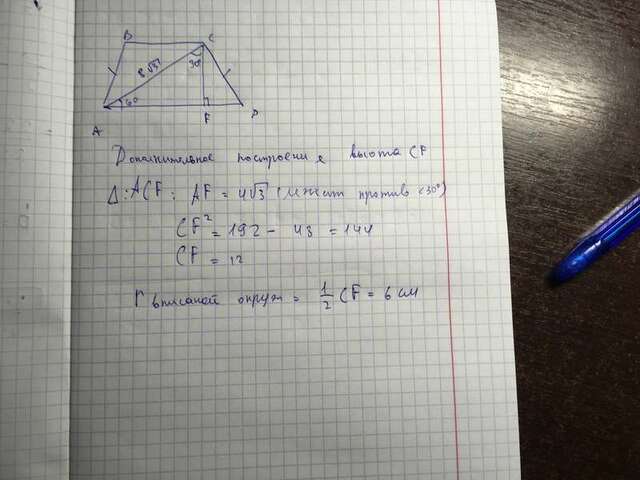 B C
8√3 30°
60
A F D
Дополнительное построение высота CF
Δ: ACF: AF = 4√3 (лежит против <30°)
CF² = 192 - 48 = 144
CF = 12
r вписаной окруж = 1/2 CF = 6 см